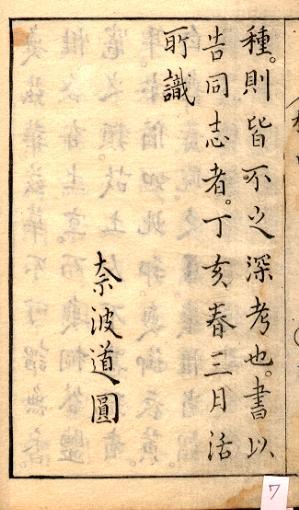 種。則皆不之深考也。書以
告同志者。丁亥春三月活
所識
奈波道圓
7